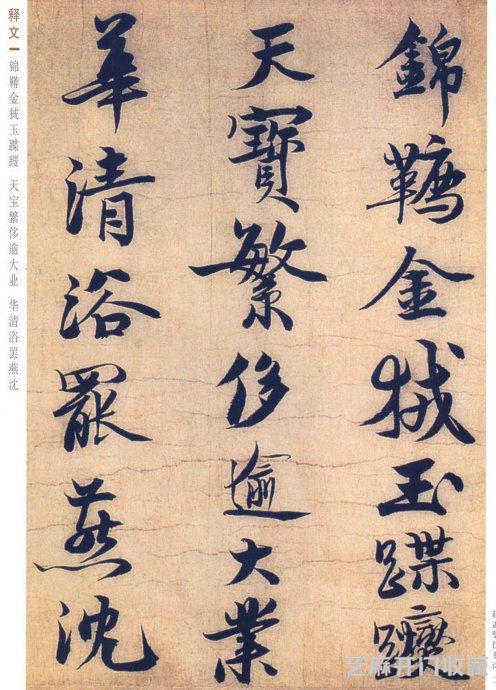 錦韉金
玉蹀躞
天寶繁侈逾大業
華清浴罷燕沈
释文
锦鞯金
玉蹀躞 天宝繁侈逾大业 华清浴罢燕沈
芝麻开门收藏